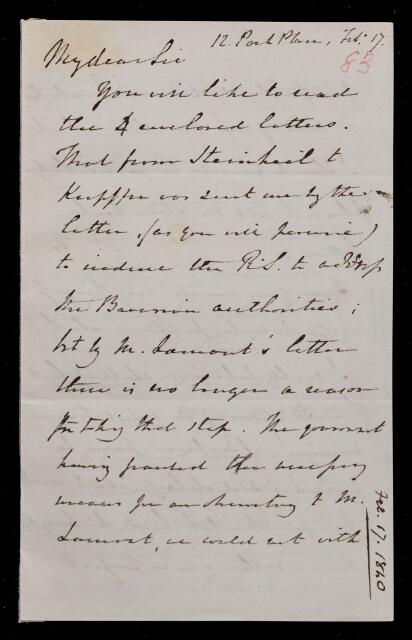 12. Park Place, Feb. 17.
83
My dear Sir
You will like to read
the 4 enclosed letters.
That from Steinheil to
Kupffer was sent me by the
latter, (as you will perceive)
to induce the R.S. to address
the Bavarian authorities;
but by M. Lamont's letter
there is no longer a reason
for taking that step. The government
having granted the necessary
means for an observatory to M.
Lamont, we could not with
Feb. 17. 1840